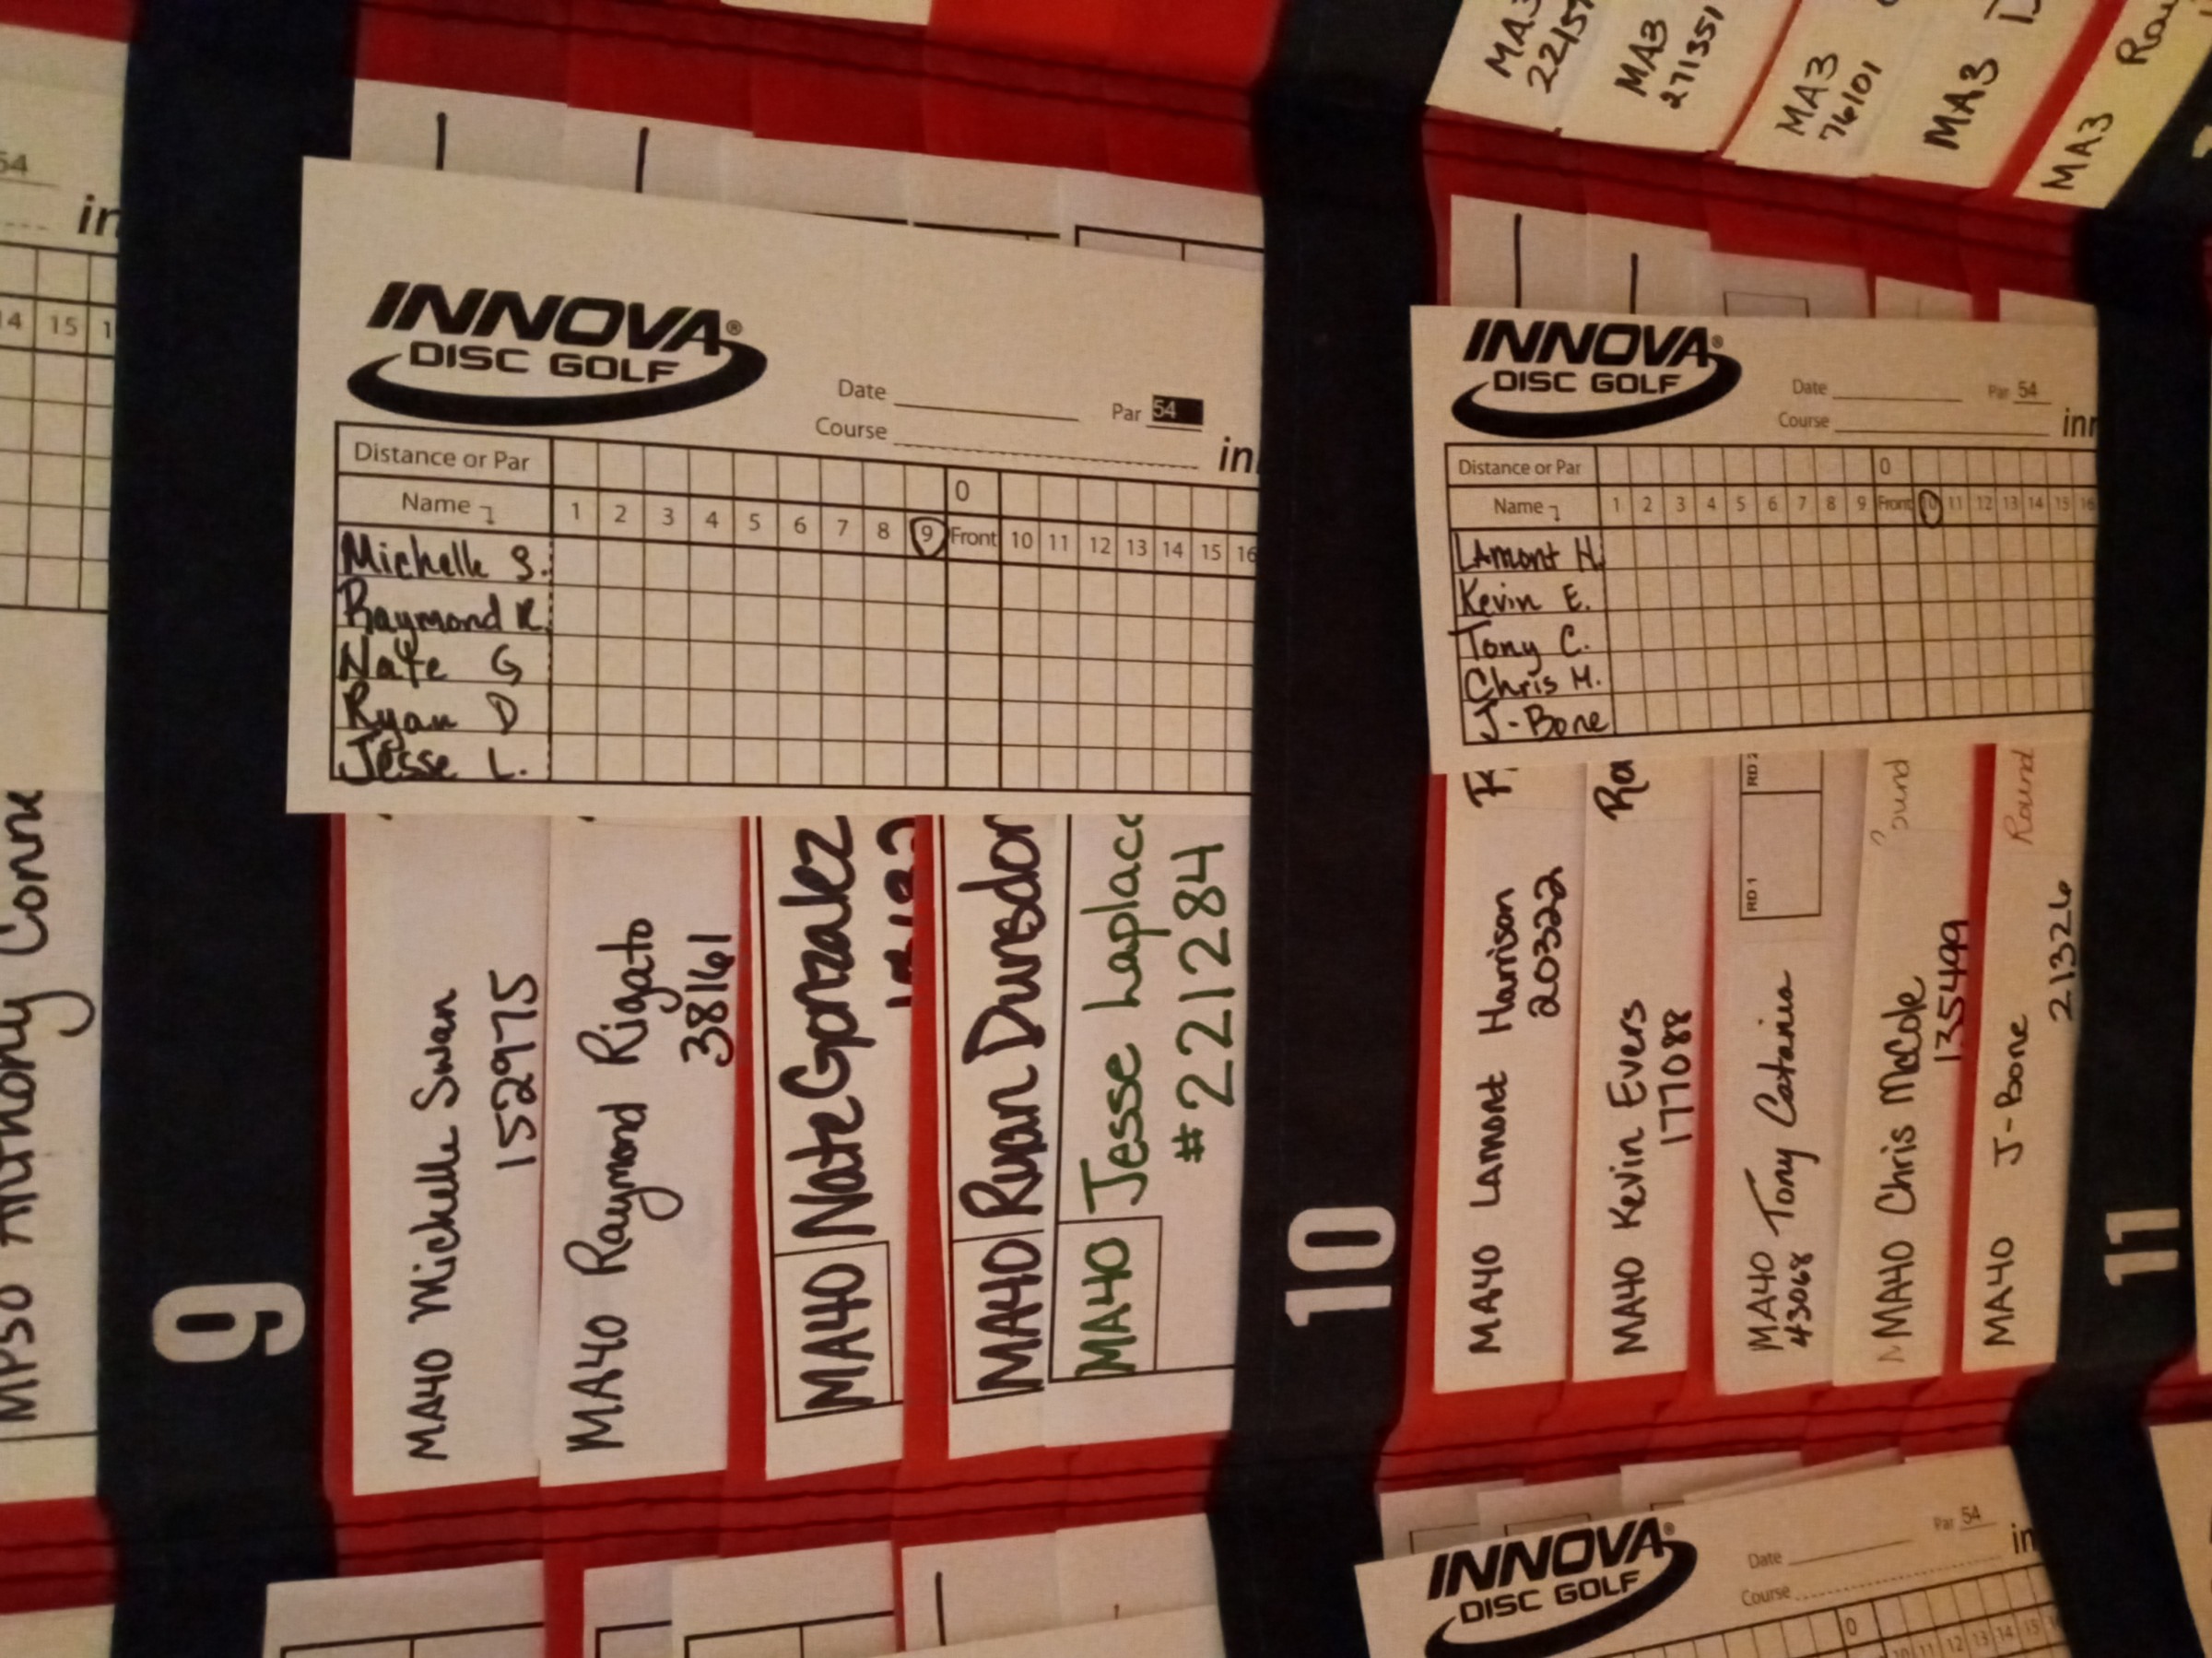 54
in
14 15 1
MP50 Anthony Conne
9
INNOVA®
DISC GOLF
Date
Par 54
Course
in
Distance or Par
0
Name
1 2 3 4 5 6 7 8 9 Front 10 11 12 13 14 15 16
Michelle S.
Raymond R.
Nate G
Ryan D
Jesse L.
MA40 Michelle Swan
152975
MA40 Raymond Rigato
38161
MA40 Nate Gonzalez
MA40 Ryan Dunsdon
MA40 Jesse Laplac
#221284
10
MA3
22157
MA3
271351
MA3
76101
MA3
MA3 Ra
INNOVA®
DISC GOLF
Date
Par 54
Course
inn
Distance or Par
0
Name
1 2 3 4 5 6 7 8 9 Front 10 11 12 13 14 15 16
Lamont H.
Kevin E.
Tony C.
Chris M.
J-Bone
MA40 Lamont Harrison
20322
MA40 Kevin Evers Ra
177088
MA40 Tony Catania
43068
RD 1
RD 2
MA40 Chris McCole ound
135499
MA40 J-Bone Round
21326
11
INNOVA®
DISC GOLF
Date
Par 54
Course
in
0
10 11 12 13 14 15